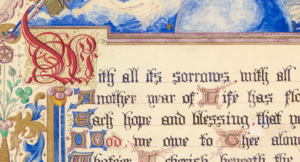 With all its sorrows, with all
Another year of Life has flo
Each hope and blessing, that
God, we owe to Thee alon
cherish beneath the